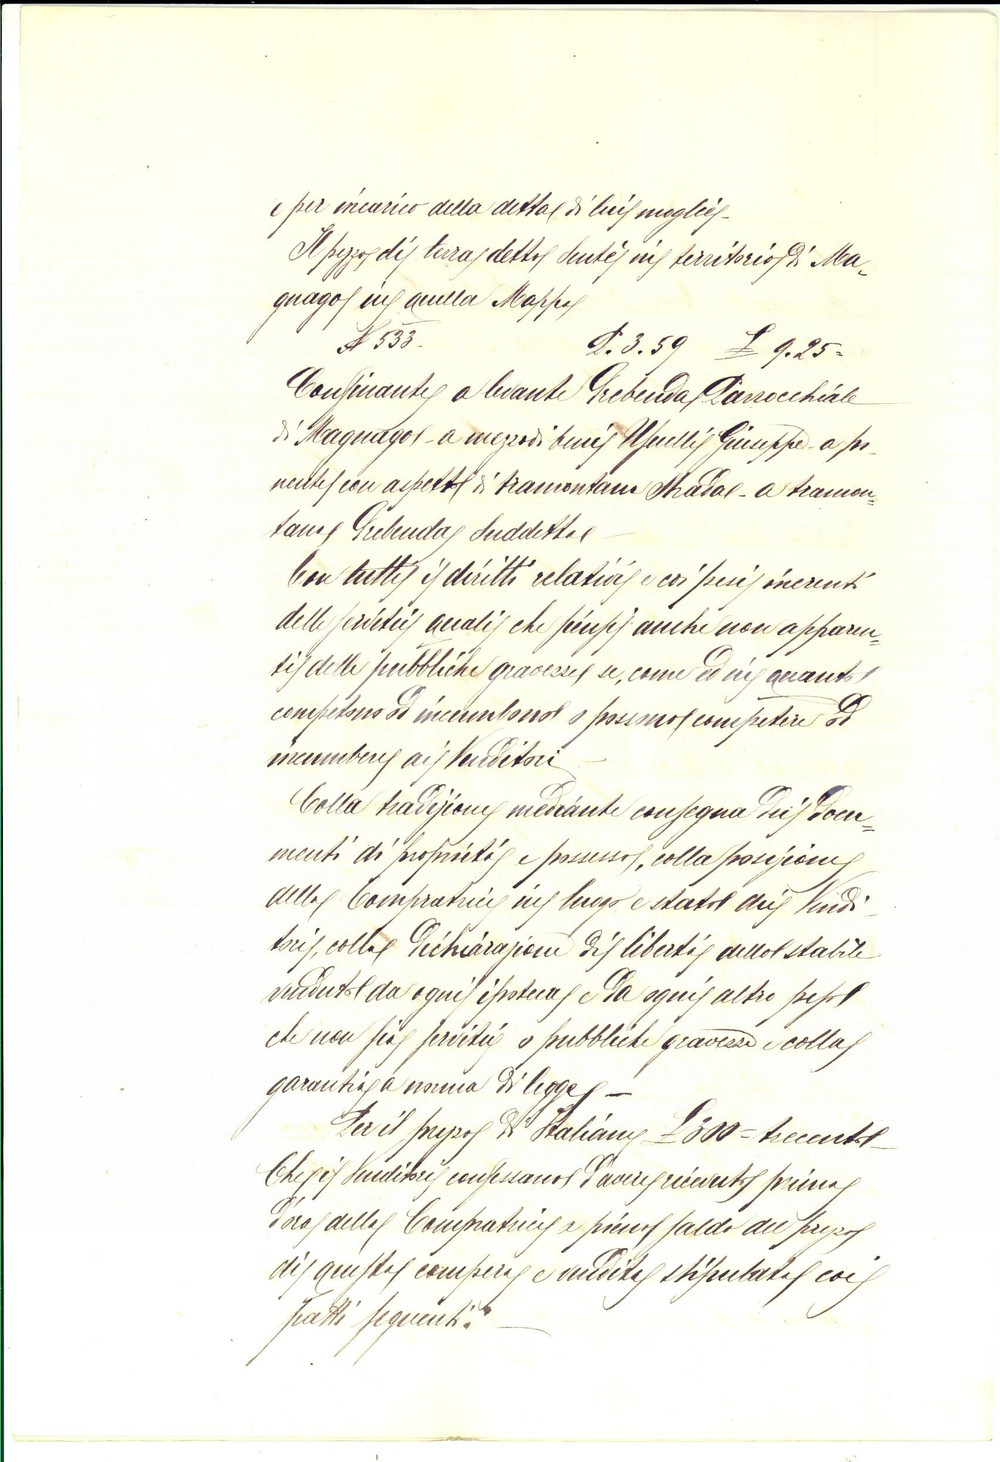 e per incarico della detta di lui moglie
Il pezzo di terra detto in territorio di Ma=
gnago in quella Mappa
N 533. P. 3. 59 £ 9. 25=
Confinante a levante Prebenda Parrocchiale
di Magnago - a mezzodì beni Giuseppe - a po=
nente con aspetto di tramontana strada - a tramon=
tana Prebenda suddetta
Con tutti i diritti relativi e coi pesi inerenti
delle servitù quali che siensi anche non apparen=
ti e delle pubbliche gravezze se, come ed in quanto
competono od incumbono o possono competere od
incumbere ai Venditori
Colla tradizione mediante consegna dei docu=
menti di proprietà e possesso, colla posizione
della Compratrice in luogo e stato dei Vendi-
tori, colla dichiarazione di libertà dello stabile
venduto da ogni ipoteca e da ogni altro peso
che non sia servitù o pubbliche gravezze e colla
garanzia a norma di legge -
Per il prezzo di Italiane £ 300 = trecento
Che i Venditori confessano d'avere ricevuto prima
d'ora dalla Compratrice a pieno saldo del prezzo
di questa compera e vendita stipulata coi
patti seguenti: